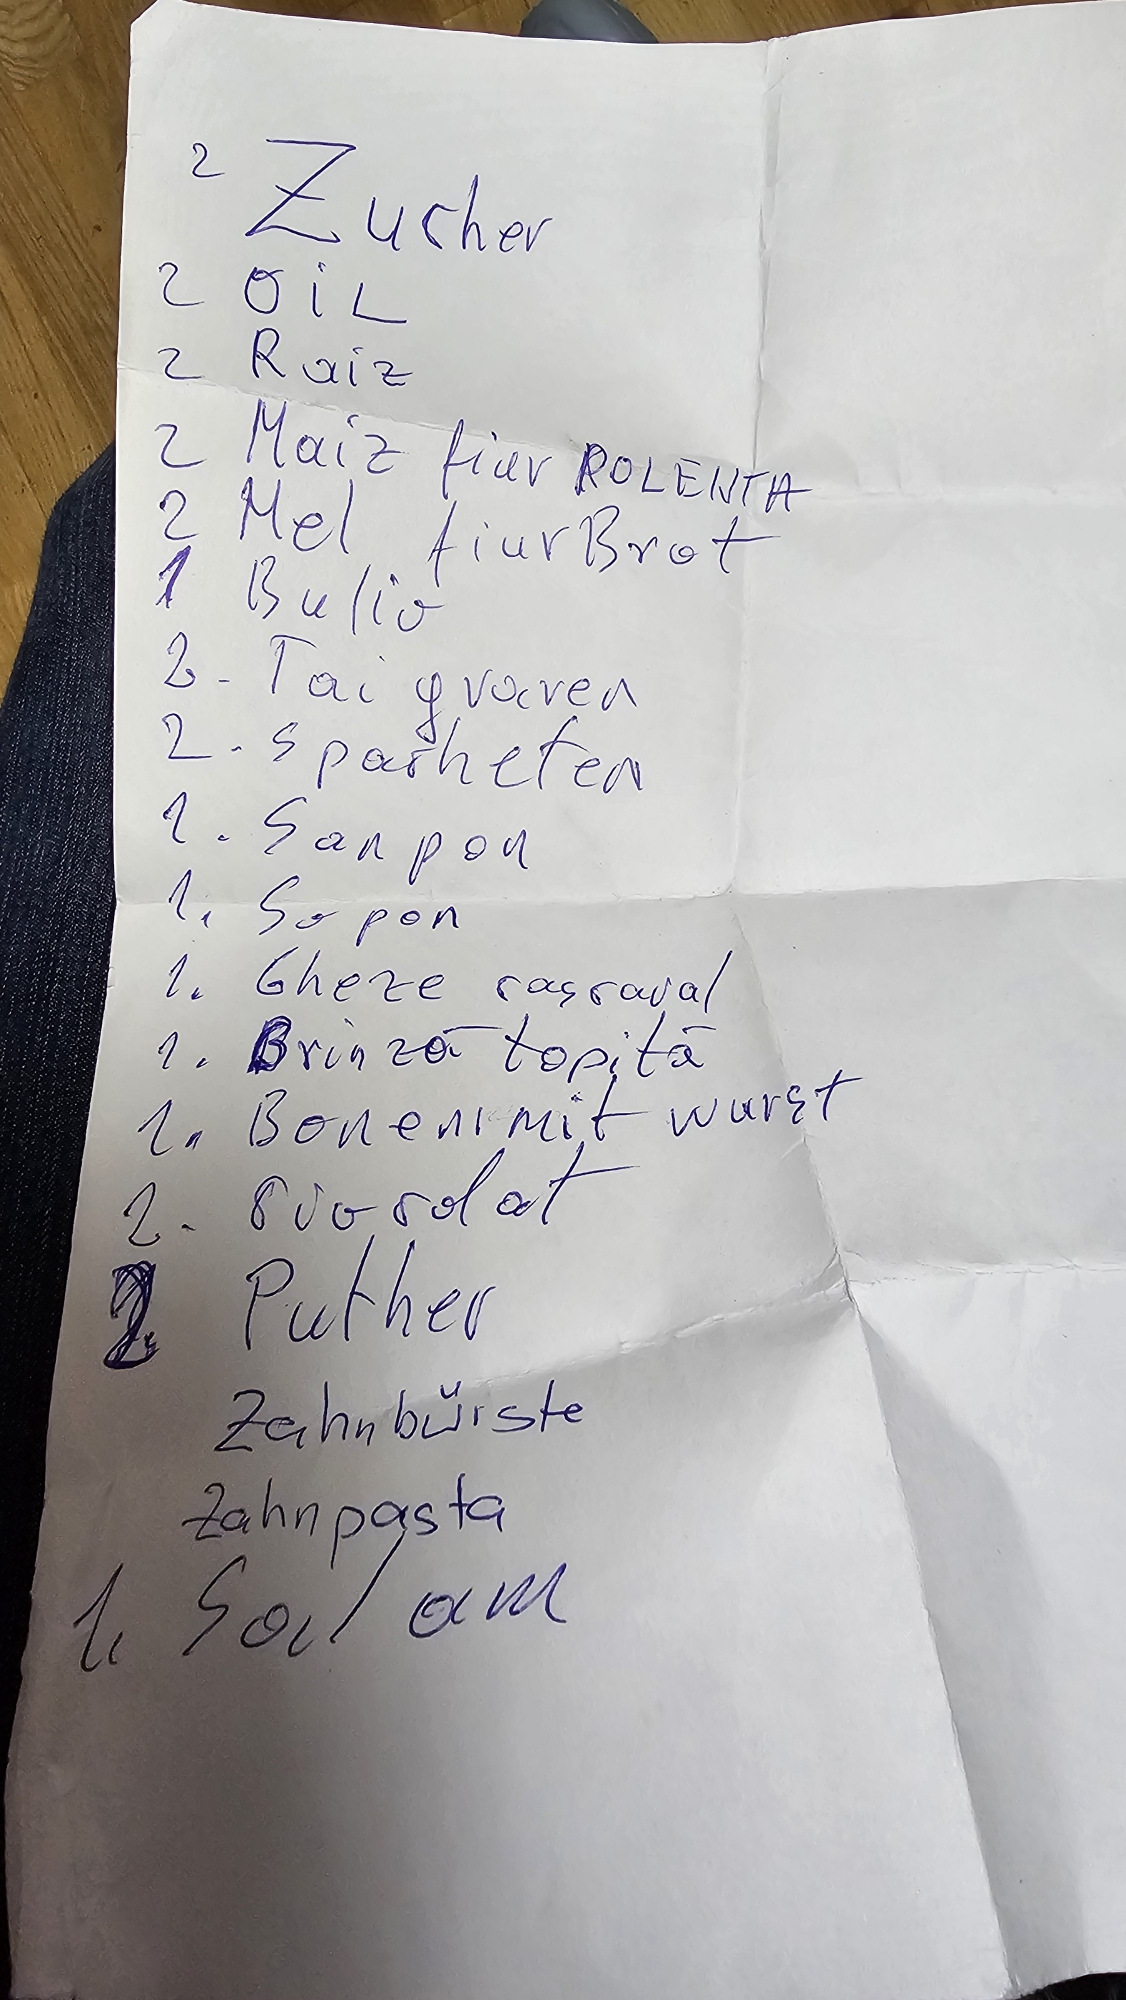 2 Zucher
2 OiL
2 Raiz
2 Maiz fiur POLENTA
2 Mel fiur Brot
1 Bulio
2. Taigvaren
2. Spasheten
1. Sanpon
1. Sopon
1. Gheze cașcaval
1. Brinză topită
1. Bonen mit wurst
2. Ciocolat
2 Puther
Zahnbürste
Zahnpasta
1. Salam